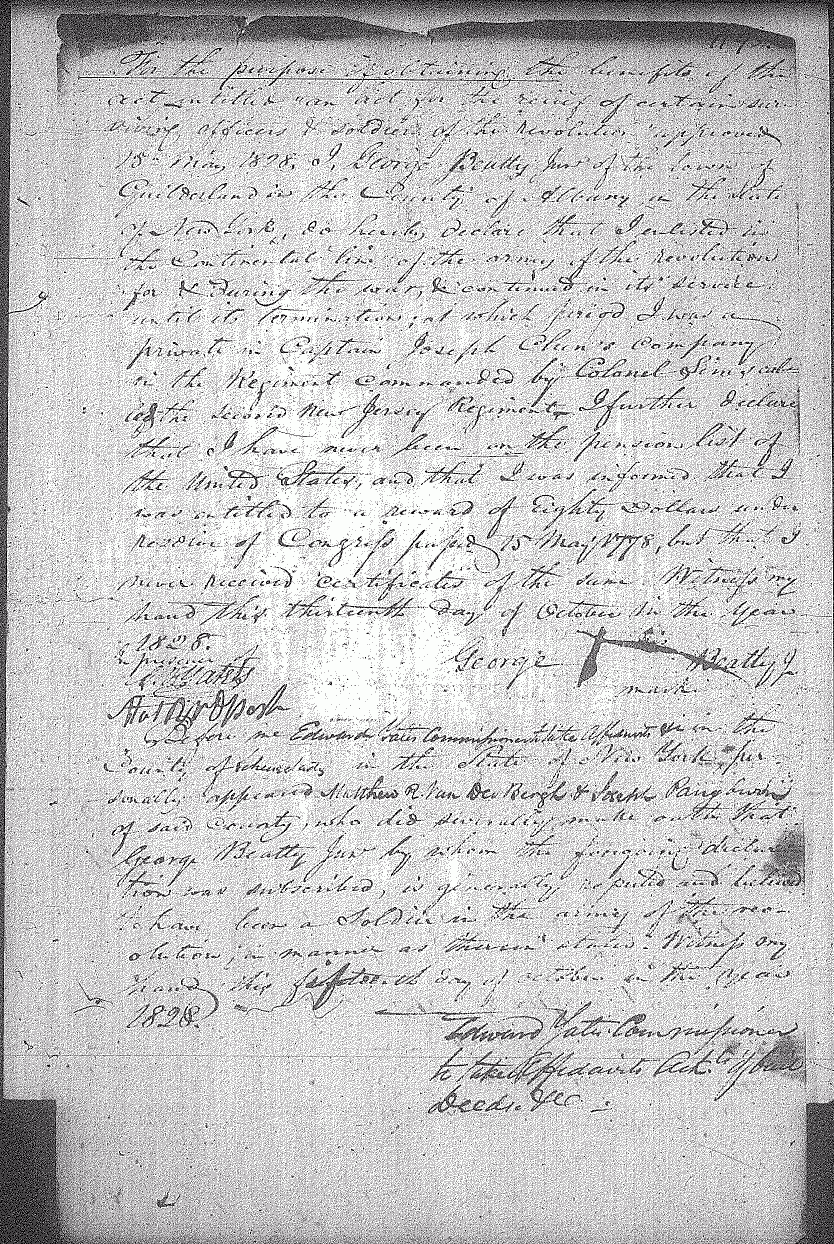 For the purpose of obtaining the benefits of the
act entitled "an act for the relief of certain sur-
viving officers & soldiers of the revolution" approved
15th May 1828. I, George Beatty Junr of the Town of
Guilderland in the County of Albany in the State
of New York, do hereby declare that I enlisted in
the Continental line of the army of the revolution
for & during the war, & continued in its service
until its termination; at which period I was a
private in Captain Joseph Clun's company
in the Regiment commanded by Colonel
the second New Jersey Regiment I further declare
that I have never been on the pension list of
the United States, and that I was informed that I
was entitled to a reward of Eighty Dollars under
resolve of Congress passed 15 May 1778, but that I
never received certificates of the same Witness my
hand this thirteenth day of October in the year
1828.
presence of
George Beatty Jr
mark
Before me Edward Yates Commissioner to take Affidavits &c in the
County of Schenectady in the State of New York per-
sonally appeared Matthew R. Van Den Bergh & Joseph
of said County, who did severally make oath that
George Beatty Junr by whom the foregoing declara-
tion was subscribed, is generally reputed and believed
to have been a Soldier in the army of the rev-
olution, in manner as therein stated Witness my
hand this fifteenth day of October in the year
1828.
Edward Yates Commissioner
to take Affidavits
Deeds &c